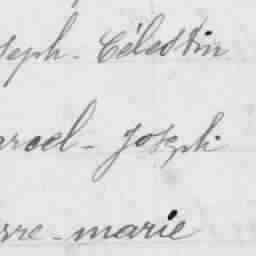 oseph - Célestin
arcel - Joseph
erre - marie